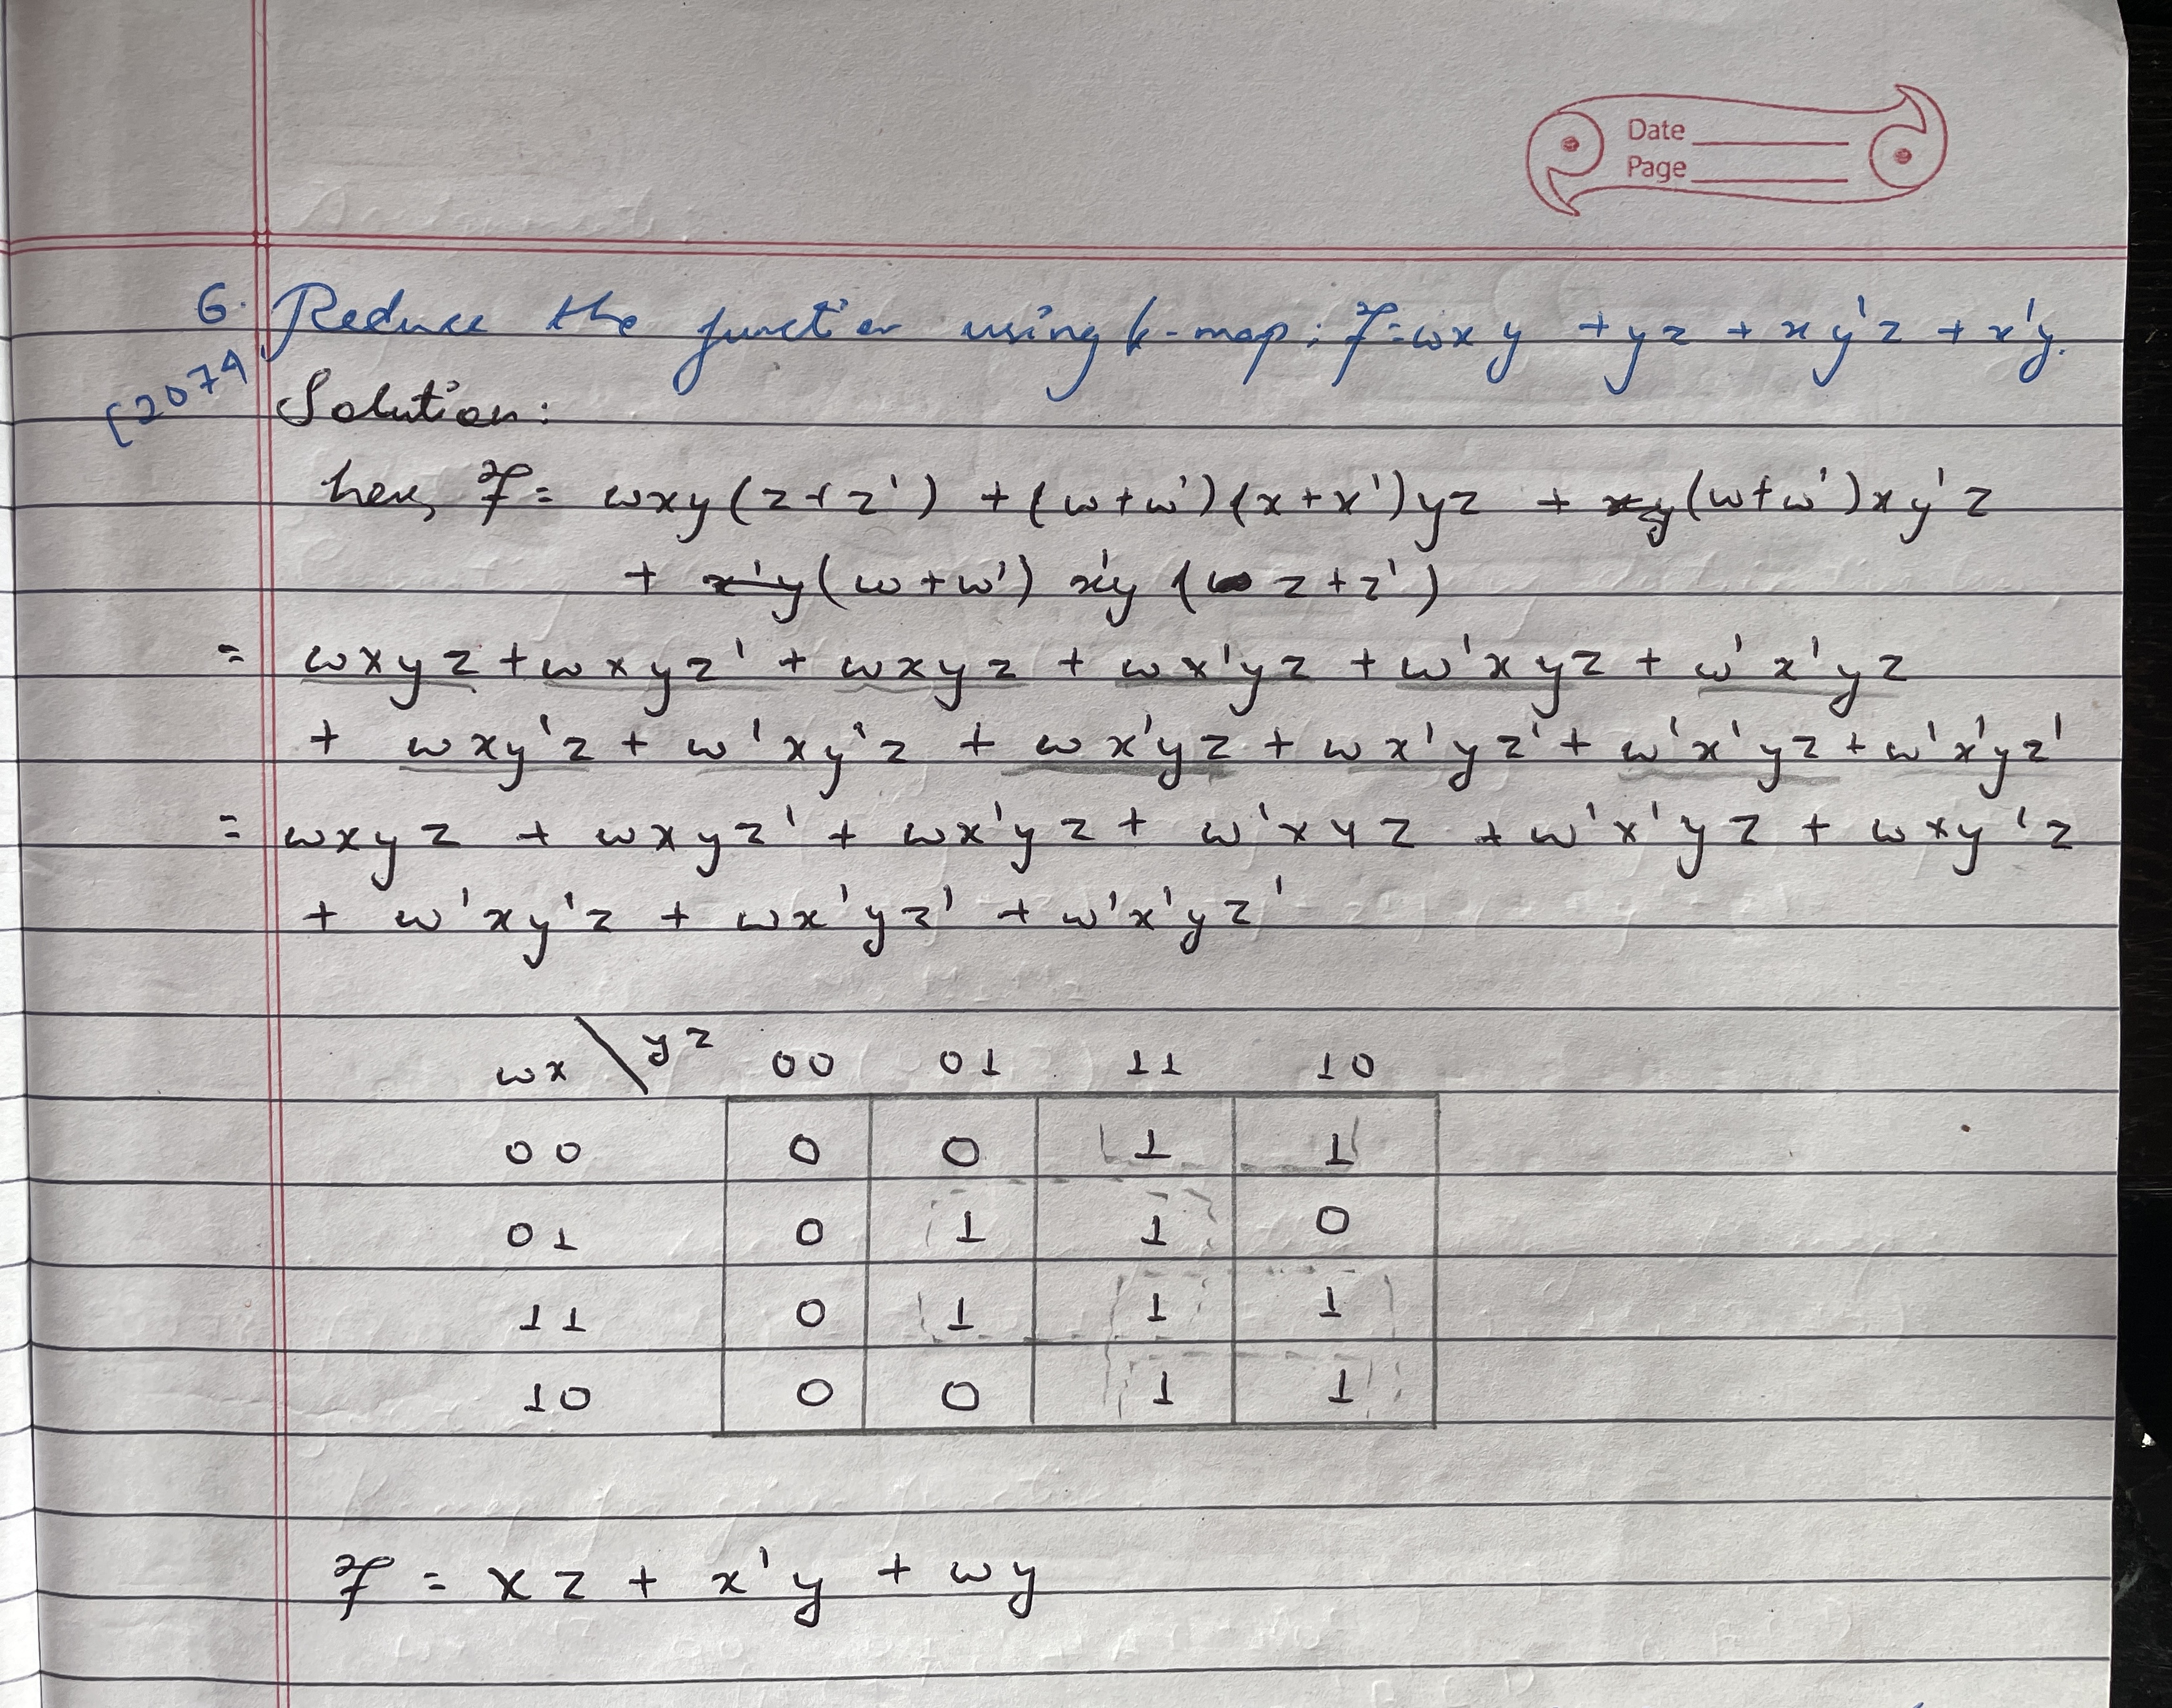 Date
Page
6. Reduce the function using k-map: F = wxy + yz + xy'z + x'y.
[2074
Solution:
here, F = wxy(z+z') + (w+w')(x+x')yz + (w+w')xy'z
+ (w+w') x'y (z+z')
= wxyz + wxyz' + wxyz + wx'yz + w'xyz + w'x'yz
+ wxy'z + w'xy'z + wx'yz + wx'yz' + w'x'yz + w'x'yz'
= wxyz + wxyz' + wx'yz + w'xyz + w'x'yz + wxy'z
+ w'xy'z + wx'yz' + w'x'yz'
wx \ yz 00 01 11 10
00 0 0 1 1
01 0 1 1 0
11 0 1 1 1
10 0 0 1 1
F = xz + x'y + wy